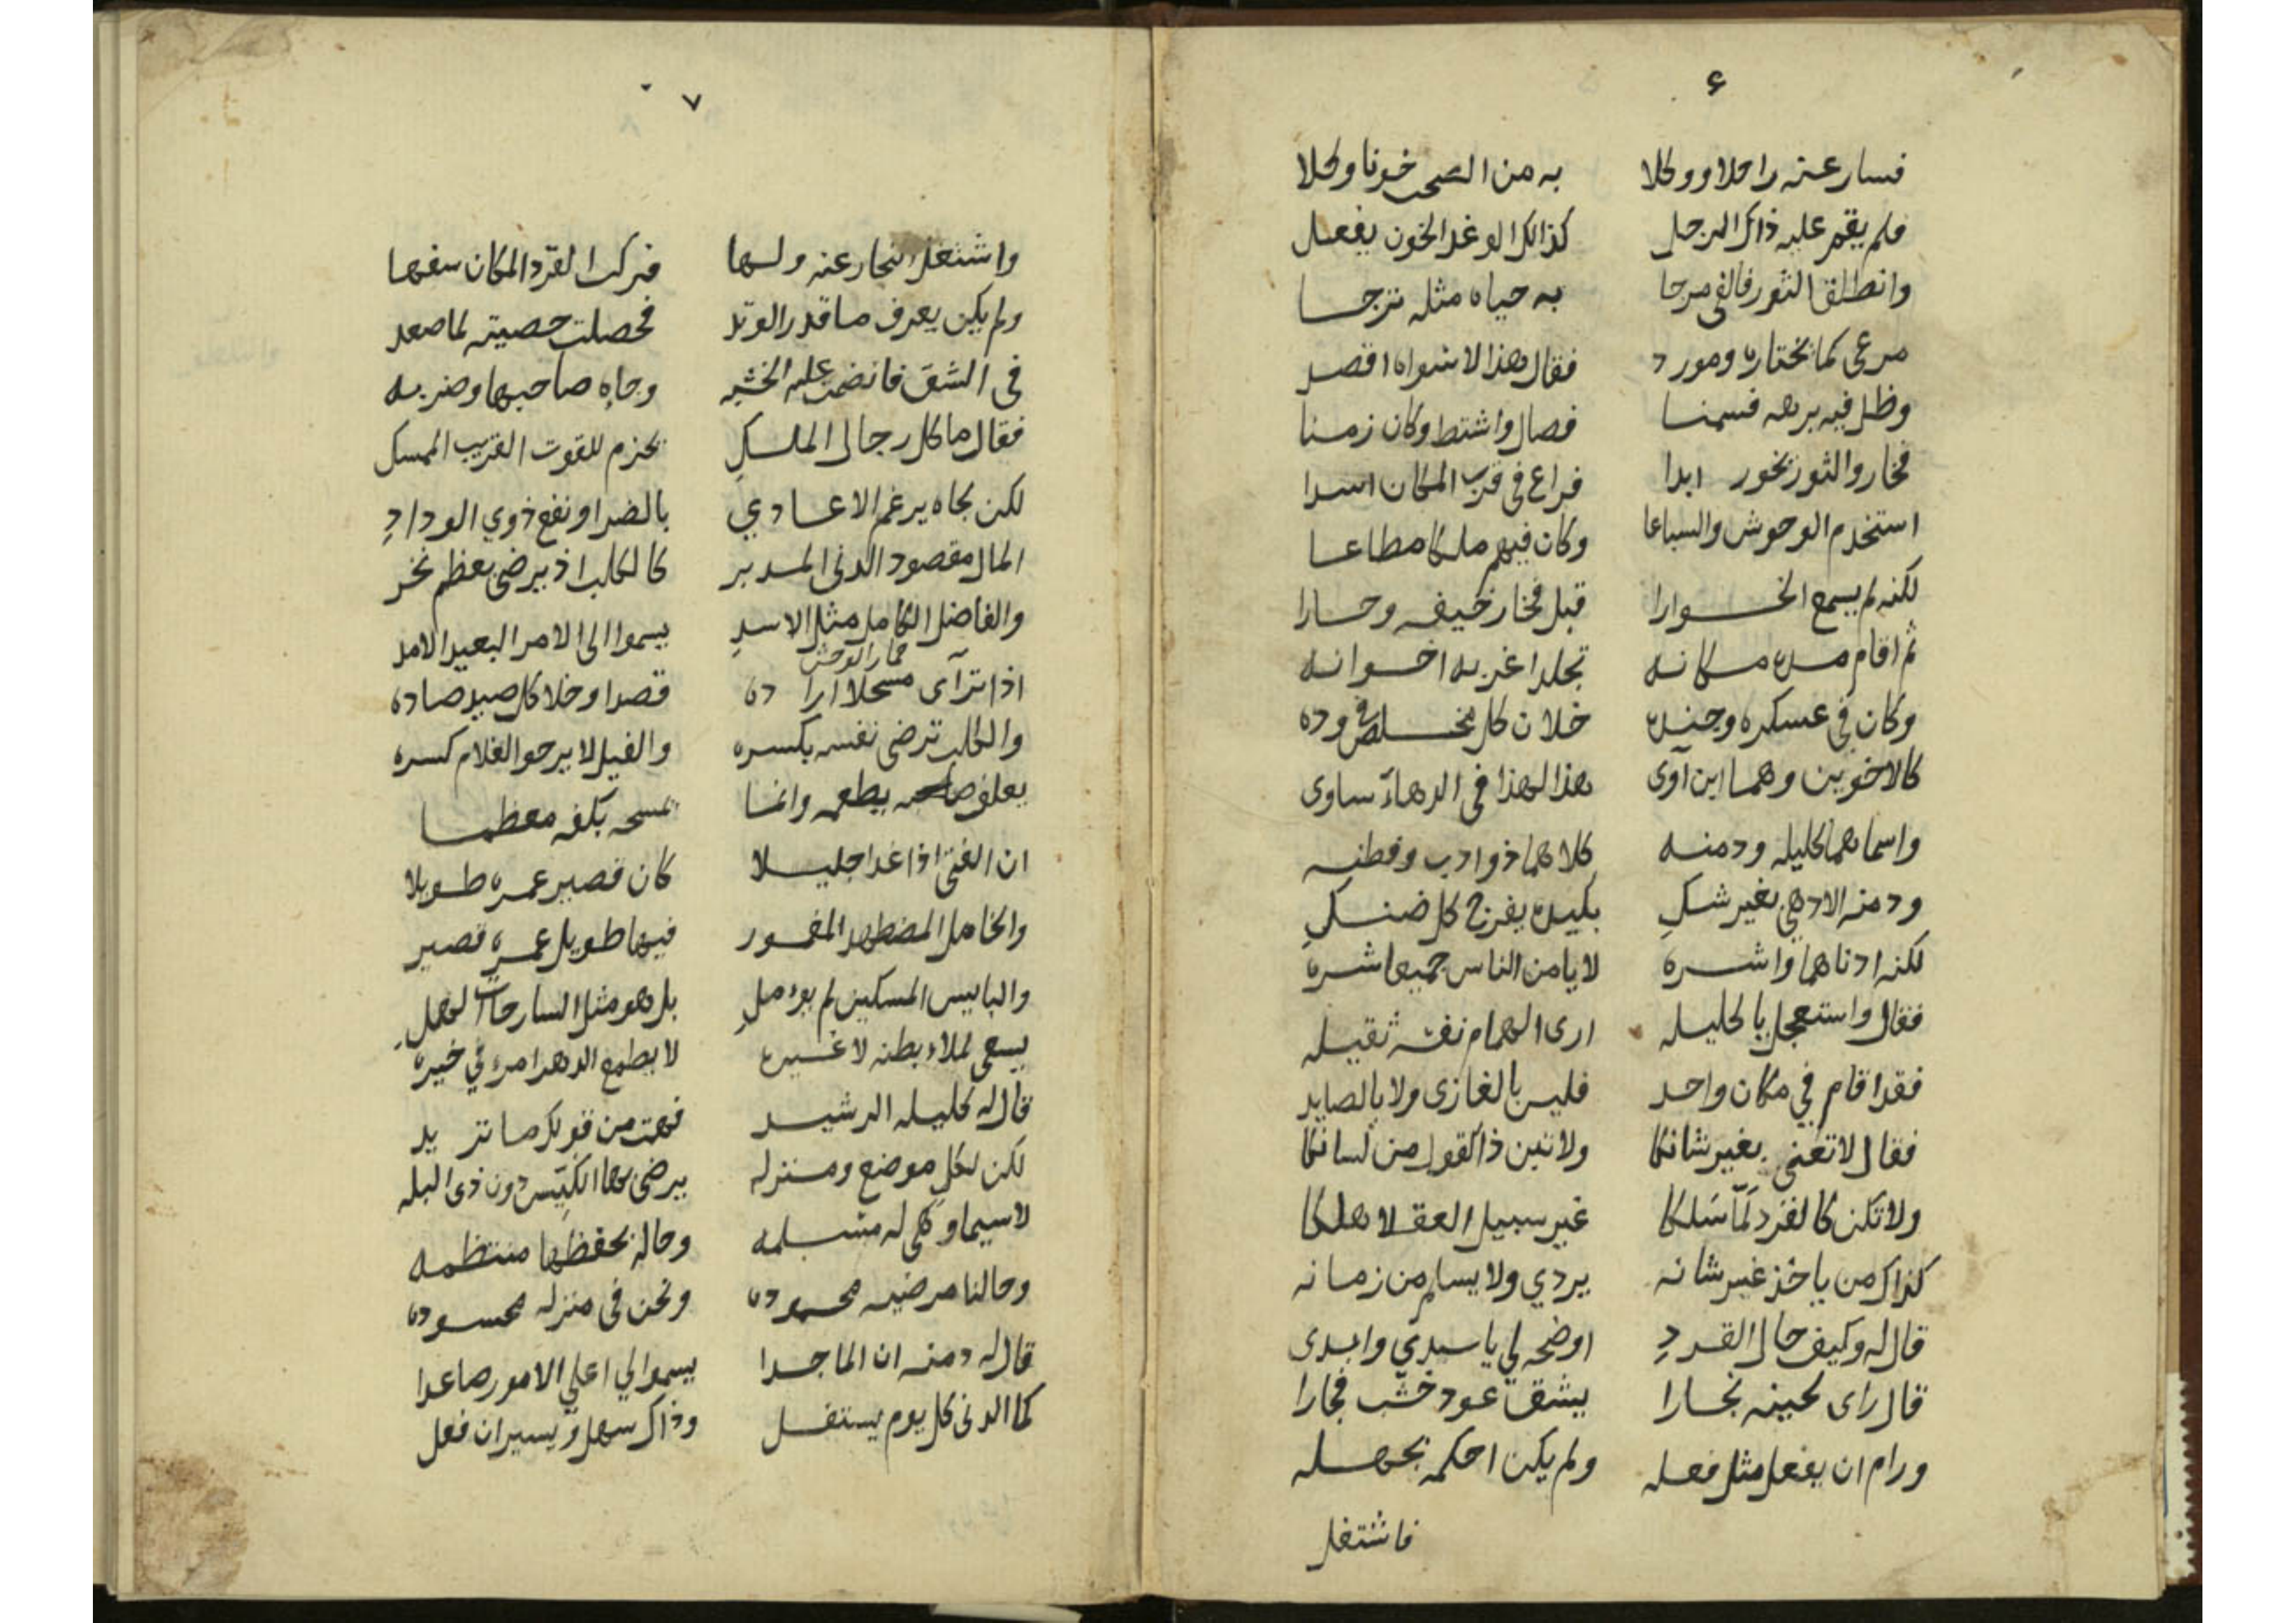 ٤
فسار عنه راحلا ووكلا به من الصحب خونا وكلا
فلم يقم عليه ذاك الرجل كذلك الوغد الخون يفعل
وانطلق الثور فالفى مرجا به حياه مثله ترجا
مرعى كما يختاره ومورد فقال هذا لا سواه اقصد
وظل فيه برهه فسمنا فصال واشتط وكان زمنا
فخار والثور يخور ابدا فراع في قرب المكان اسدا
استخدم الوحوش والسباعا وكان فيهم ملكا مطاعا
لكنه لم يسمع الخوارا قبل فخار خيفه وحارا
ثم اقام مده مكانه تجلدا غر به اخوانه
وكان في عسكره وجنده خلان كل مخلص في وده
كالاخوين وهما ابن آوى هذا لهذا في الدهاء ساوى
واسماهما كليله ودمنه كلاهما ذو ادب وفطنه
ودمنه الادهى بغير شك بكيده يفرج كل ضنك
لكنه ادناهما واشره لا يامن الناس جميعا شره
فقال واستعجل يا كليله ارى الهمام نفسه ثقيله
فقد اقام في مكان واحد فليس بالغازى ولا بالصايد
فقال لا تعنى بغير شانكا ولا تبن ذا القول من لسانكا
ولا تكن كالقرد لما سلكا غير سبيل العقلا هلكا
كذاك من ياخذ غير شانه يردي ولا يسلم من زمانه
قال له وكيف حال القرد اوضحه لي يا سيدي وابدى
قال راى لحينه نجارا يشق عود خشب فجارا
ورام ان يفعل مثل فعله ولم يكن احكمه بجهله
فاشتغل
٧
واشتغل النجار عنه ولها فركب القرد المكان سفها
ولم يكن يعرف ما قدر الوتد فحصلت خصيته لما صعد
في الشق فانضمت عليه الخشبه وجاه صاحبها وضربه
فقال ما كل رجال الملك يخزم للقوت القريب الممسك
لكن بجاه يرغم الاعادي بالضر او نفع ذوي الوداد
المال مقصود الدنى المدبر كالكلب اذ يرضى بعظم نخر
والفاضل الكامل مثل الاسد يسموا الى الامر البعيد الامد
حمار الوحش
اذا تراى مسحلا اراده قصدا وخلا كل صيد صاده
والكلب ترضى نفسه بكسره والفيل لا يرجو الغلام كسره
بعلفه صاحبه يطعمه وانما يمسحه بكفه معظما
ان الفتى اذا غدا جليلا كان قصير عمره طويلا
والخامل المضطهد المغمور فيها طويل عمره قصير
والبايس المسكين لم يؤمل بل هو مثل السارحات الهمل
يسعى لملاء بطنه لا غيره لا يطمع الدهر امرء في خيره
قال له كليله الرشيد فهمت من قولك ما تريد
لكن لكل موضع ومنزله يرضى بها الكيس دون ذى البله
لا سيما وهى له مسلمه وحاله بحفظها منتظمه
وحالنا مرضيه محموده ونحن في منزله محسوده
قال له دمنه ان الماجدا يسموا لي اعلي الامور صاعدا
كما الدنى كل يوم يستفل وذاك سهل ويسير ان فعل